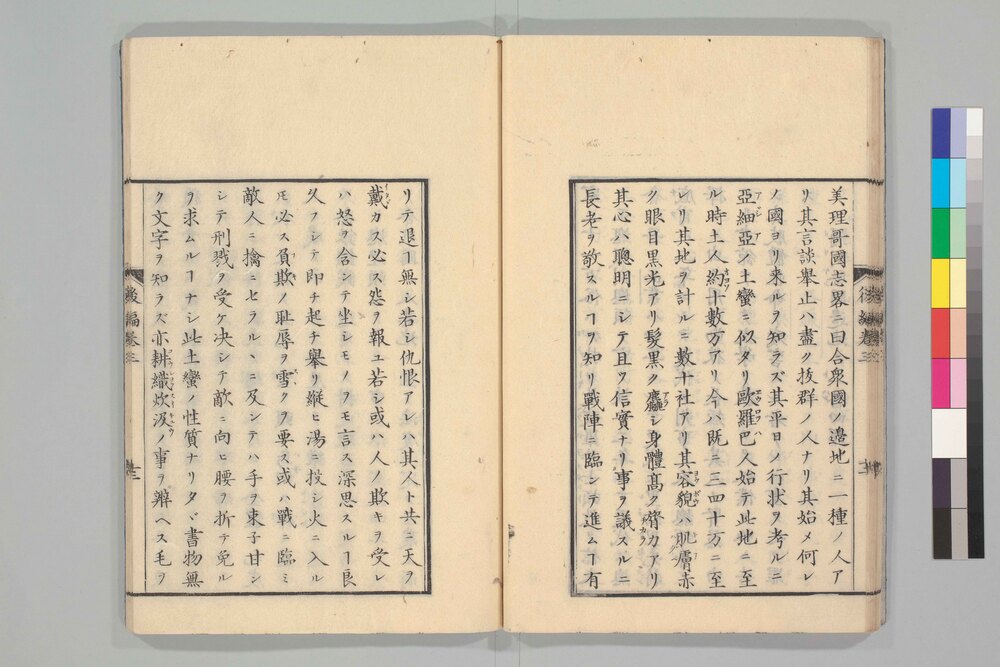 美理哥國志畧ニ曰合衆國ノ邉地ニ一種ノ人ア
リ其言談舉止ハ盡ク抜群ノ人ナリ其始メ何レ
ノ國ヨリ来ルヲ知ラズ其平日ノ行状ヲ考ルニ
亞細亞ノ土蠻ニ似タリ歐羅巴人始テ此地ニ至
ル時土人約十數万アリ今ハ既ニ三四十万ニ至
レリ其地ヲ計ルニ數十社アリ其容貌ハ肌膚赤
ク眼目黒光アリ髪黒ク麤シ身體髙ク膂力アリ
其心ハ聰明ニシテ且ツ信實ナリ事ヲ議スルニ
長老ヲ敬スルヿヲ知リ戰陣ニ臨ンテ進ムヿ有
リテ退ヿ無シ若シ仇恨アレハ其人ト共ニ天ヲ
戴カス必ス怨ヲ報ユ若シ或ハ人ノ欺キヲ受レ
ハ怒ヲ含ンテ坐シモノヲモ言ス深思スルヿ良
久フシテ即チ起チ舉リ縦ヒ湯ニ投シ火ニ入ル
𪜈必ス負欺ノ耻辱ヲ雪クヲ要ス或ハ戰ニ臨ミ
敵人ニ擒ニセラルヽニ及ンテハ手ヲ束子甘ン
シテ刑戮ヲ受ケ决シテ敵ニ向ヒ腰ヲ折テ免ル
ヲ求ムルヿナシ此土蠻ノ性質ナリタヾ書物無
ク文字ヲ知ラズ亦耕織炊汲ノ事ヲ辨ヘス毛ヲ
後編巻三